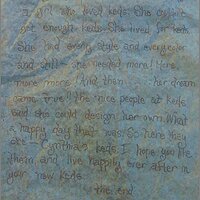 a girl she lived keds. She couldn't
get enough keds. She lived for keds.
She had every style and every color
and still - she needed more! More,
more more! And then her dream
came true! The nice people at keds
said she could design her own. What
a happy day that was. So here they
are - Cynthia's keds. I hope you like
them, and live happily ever after in
your new keds.
the end